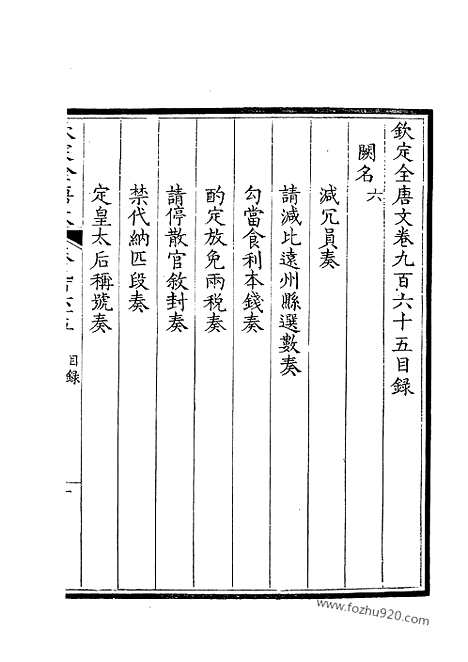 欽定全唐文卷九百六十五目録
闕名六
減冗員奏
請減比遠州縣選數奏
勾當食利本錢奏
酌定放免兩税奏
請停散官敘封奏
禁代納匹段奏
定皇太后稱號奏
目録
一
www.fozhu920.com